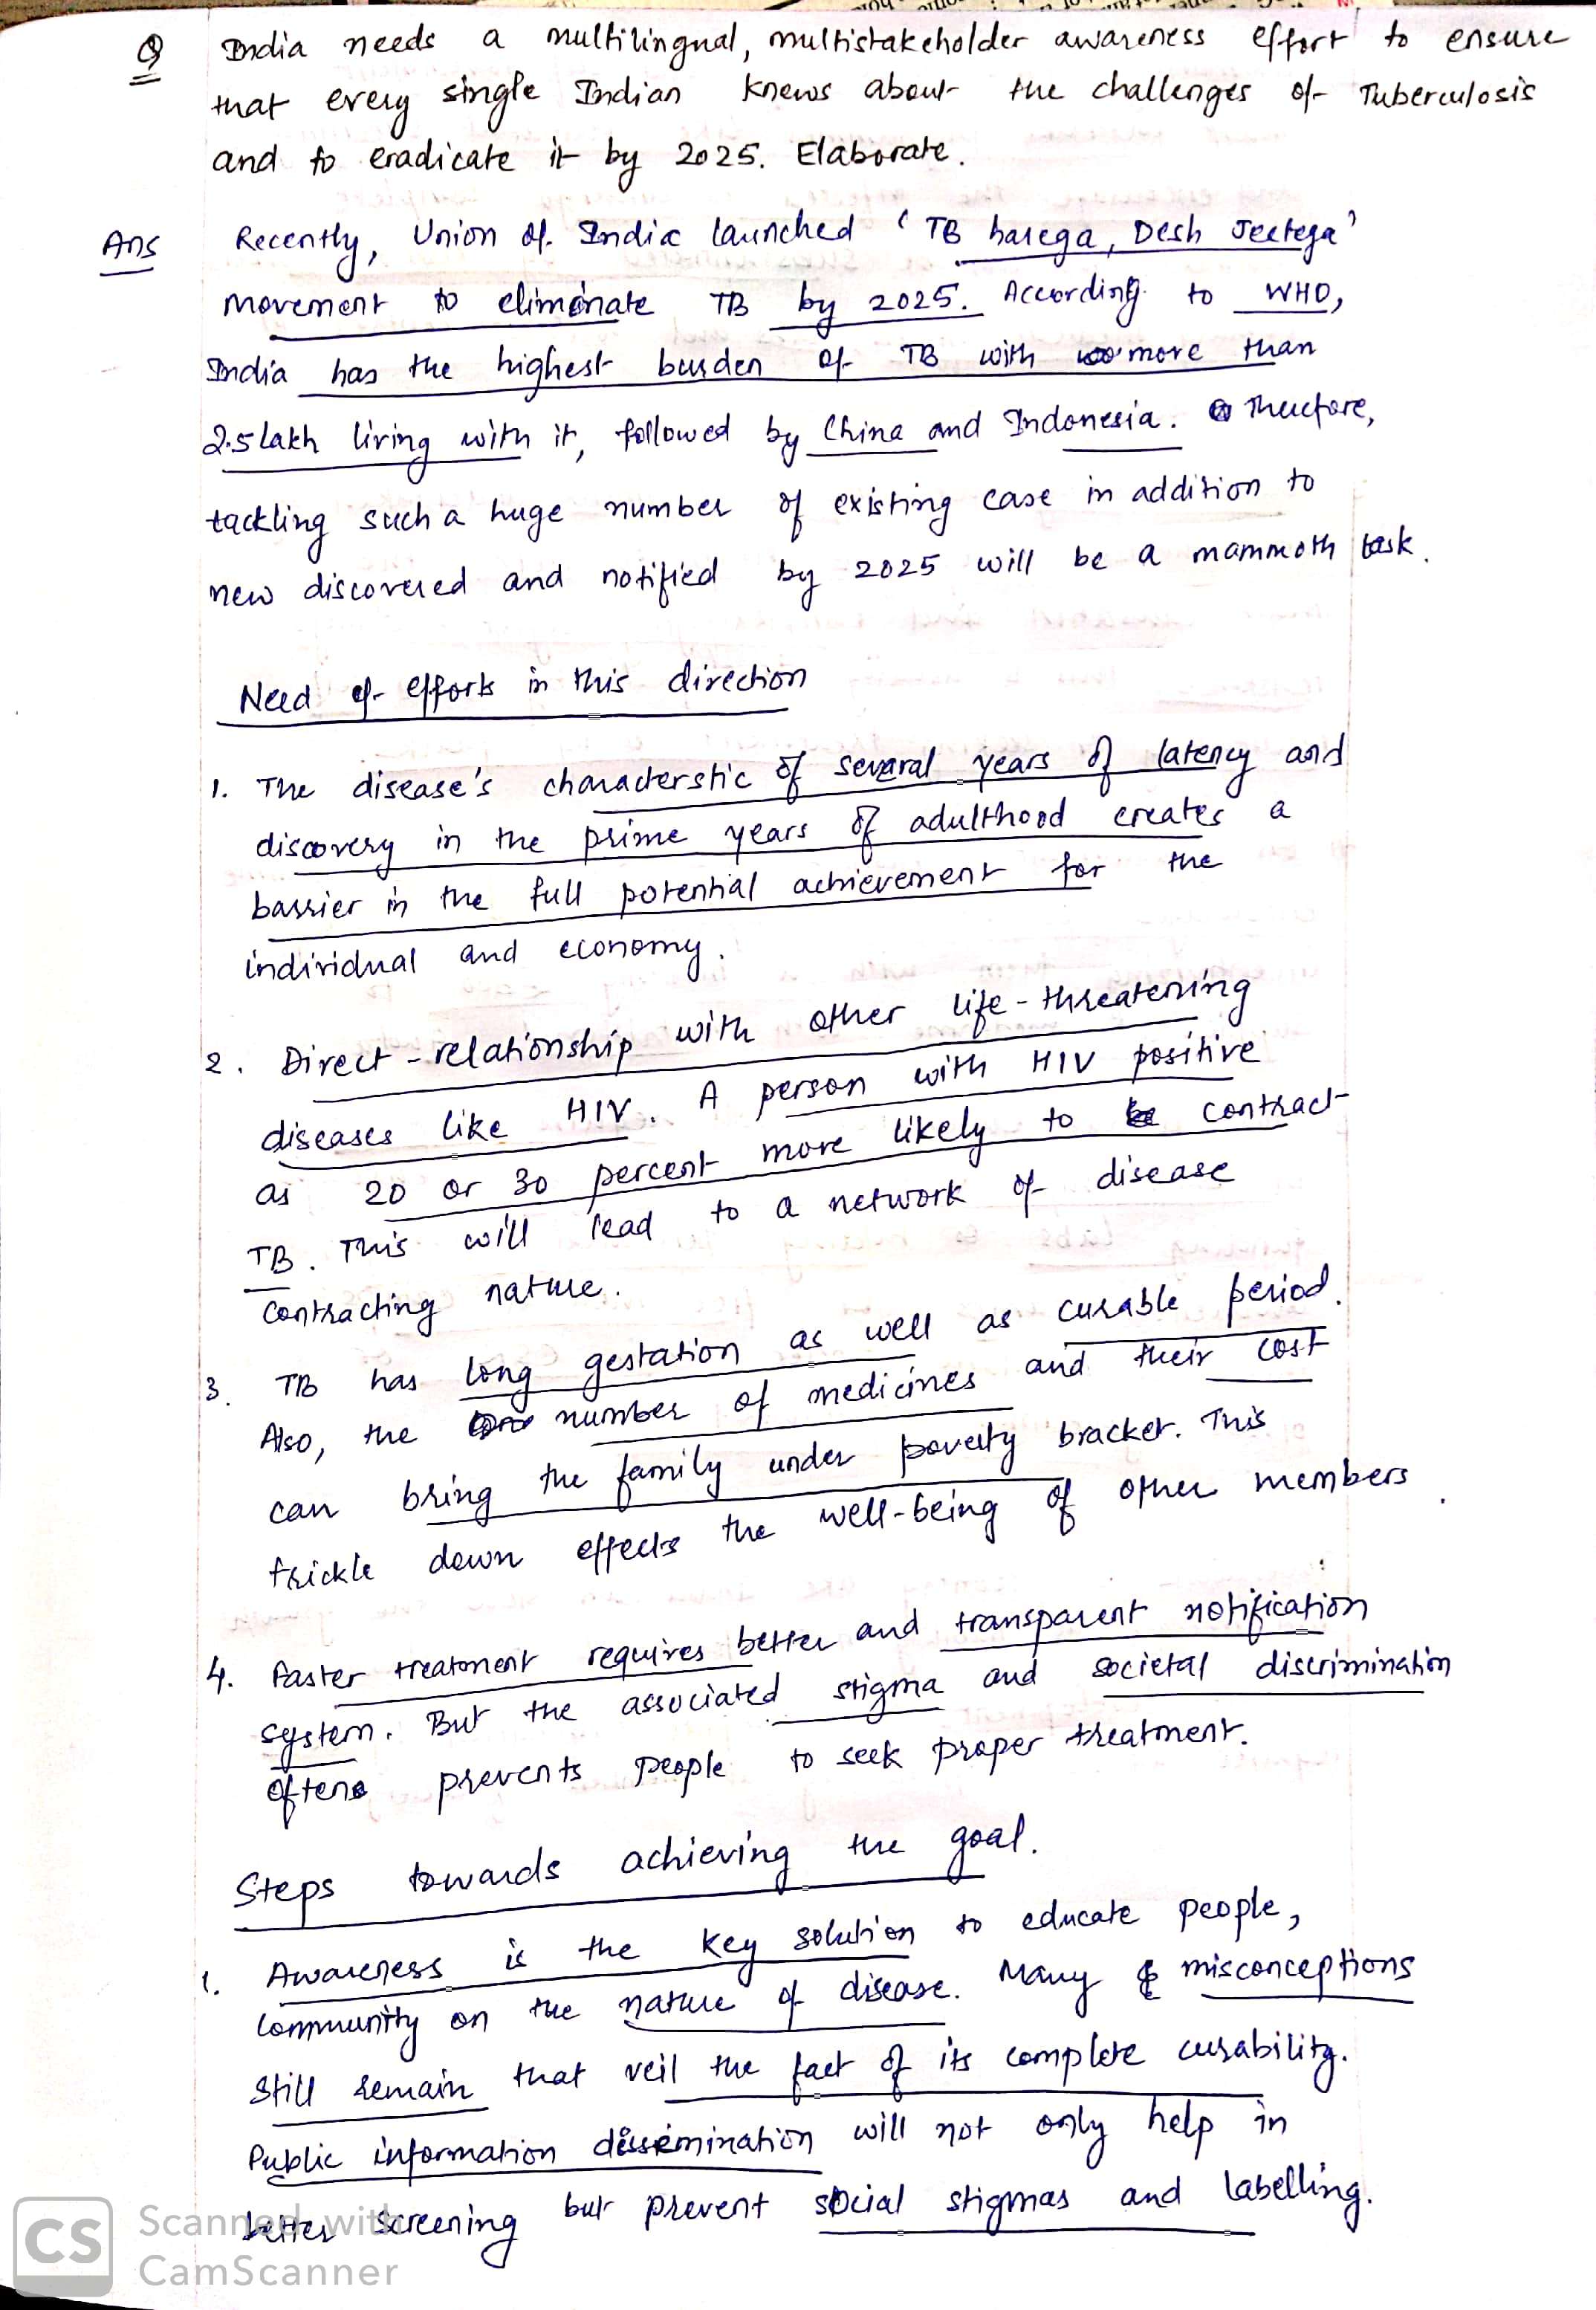 Q India needs a multilingual, multistakeholder awareness effort to ensure
that every single Indian knows about the challenges of Tuberculosis
and to eradicate it by 2025. Elaborate.
Ans Recently, Union of India launched 'TB harega, Desh Jeetega'
movement to eliminate TB by 2025. According to WHO,
India has the highest burden of TB with more than
2.5 lakh living with it, followed by China and Indonesia. Therefore,
tackling such a huge number of existing case in addition to
new discovered and notified by 2025 will be a mammoth task.
Need of efforts in this direction
1. The disease's characterstic of several years of latency and
discovery in the prime years of adulthood creates a
barrier in the full potential achievement for the
individual and economy.
2. Direct-relationship with other life-threatening
diseases like HIV. A person with HIV positive
as 20 or 30 percent more likely to contract
TB. This will lead to a network of disease
contracting nature.
3. TB has long gestation as well as curable period.
Also, the number of medicines and their cost
can bring the family under poverty bracket. This
trickle down effects the well-being of other members.
4. Faster treatment requires better and transparent notification
system. But the associated stigma and societal discrimination
often prevents people to seek proper treatment.
Steps towards achieving the goal.
1. Awareness is the key solution to educate people,
community on the nature of disease. Many misconceptions
still remain that veil the fact of its complete curability.
Public information dissemination will not only help in
better screening but prevent social stigmas and labelling.
CS Scanned with
CamScanner